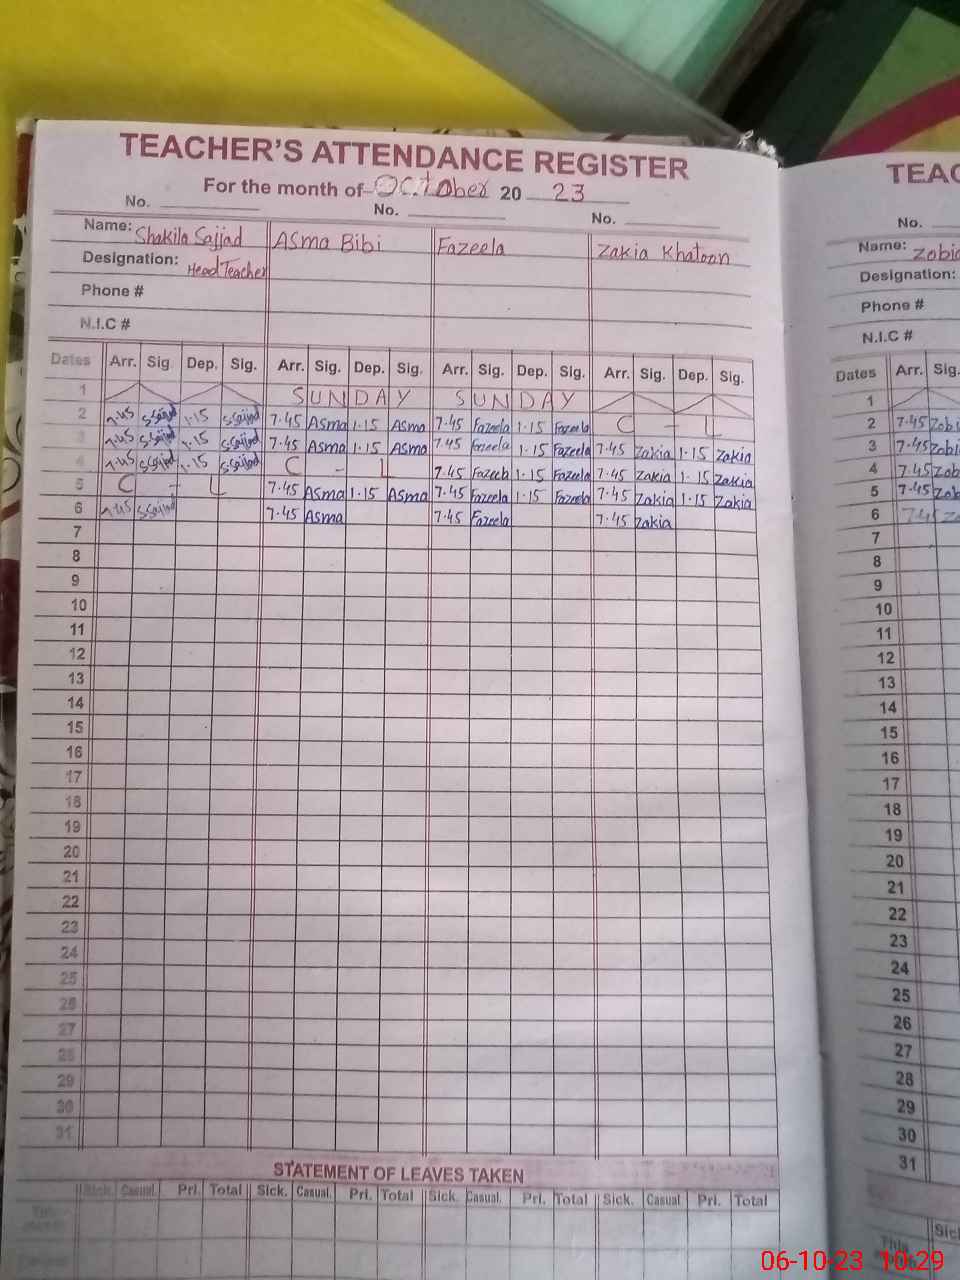 TEACHER'S ATTENDANCE REGISTER
For the month of October 20 23
No. No. No.
Name: Shakila Sajjad Asma Bibi Fazeela Zakia Khatoon
Designation: Head Teacher
Phone #
N.I.C #
Dates Arr. Sig. Dep. Sig. Arr. Sig. Dep. Sig. Arr. Sig. Dep. Sig. Arr. Sig. Dep. Sig.
1 SUNDAY SUNDAY
2 7.45 S.Sajjad 1.15 S.Sajjad 7.45 Asma 1.15 Asma 7.45 Fazeela 1.15 Fazeela C - L
3 7.45 S.Sajjad 1.15 S.Sajjad 7.45 Asma 1.15 Asma 7.45 Fazeela 1.15 Fazeela 7.45 Zakia 1.15 Zakia
4 7.45 S.Sajjad 1.15 S.Sajjad C - L 7.45 Fazeela 1.15 Fazeela 7.45 Zakia 1.15 Zakia
5 C - L 7.45 Asma 1.15 Asma 7.45 Fazeela 1.15 Fazeela 7.45 Zakia 1.15 Zakia
6 7.45 S.Sajjad 7.45 Asma 7.45 Fazeela 7.45 Zakia
7
8
9
10
11
12
13
14
15
16
17
18
19
20
21
22
23
24
25
26
27
28
29
30
31
STATEMENT OF LEAVES TAKEN
Sick. Casual. Pri. Total Sick. Casual. Pri. Total Sick. Casual. Pri. Total Sick. Casual Pri. Total
TEAC
No.
Name: Zobia
Designation:
Phone #
N.I.C #
Dates Arr. Sig.
1
2 7.45 Zobi
3 7.45 Zobi
4 7.45 Zob
5 7.45 Zob
6 7.45 Zo
7
8
9
10
11
12
13
14
15
16
17
18
19
20
21
22
23
24
25
26
27
28
29
30
31
Sick
This
06-10-23 10:29